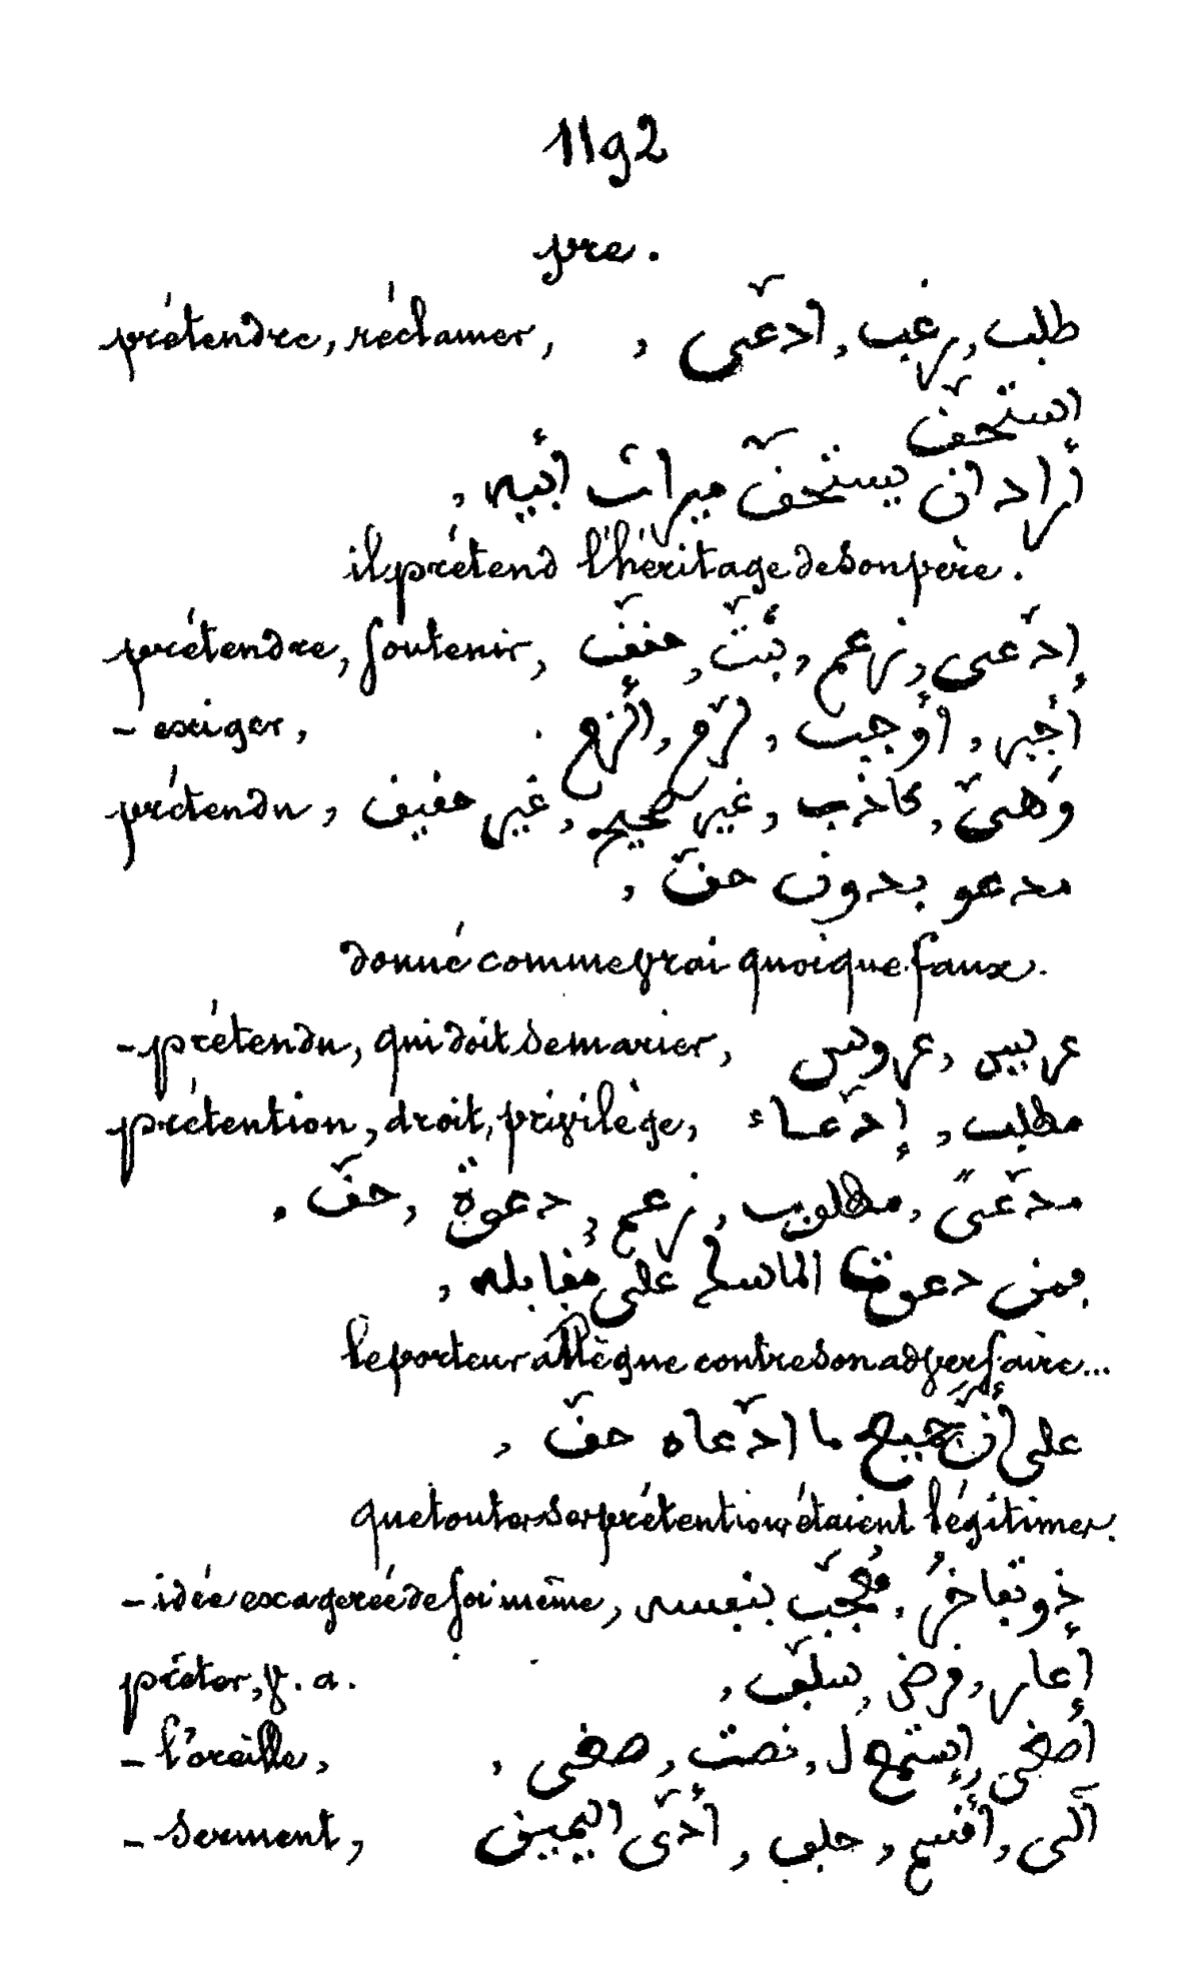 1192
pre.
prétendre, réclamer, طلب, رغب, ادّعى,
استحقّ
أراد ان يستحقّ ميراث أبيه,
il prétend l'héritage de son père.
prétendre, soutenir, إدّعى, زعم, بثّت, حقق
– exiger, أجبر, أوجب, لزّم, ألزم.
prétendu, وَهميّ, كاذب, غير صحيح, غير حقيق
مدعو بدون حقّ,
donné comme vrai quoique faux.
– prétendu, qui doit se marier, عريس, عروس
prétention, droit, privilège, مطلب, إدّعاء
مدّعىً, مطلوب, زعم, دعوة, حقّ.
فمن دعوت الماسك على مقابله,
le porteur allègue contre son adversaire...
على أنّ جميع ما ادّعاه حقّ,
que toutes ses prétentions étaient légitimes.
– idée exagérée de soi même, ذو تفاخرُ, مُعجّب بنفسه
prêter, v. a. إعار, قرض, سلّف,
– l'oreille, أصغى, إستمع ل, نصت, صغى,
– serment, آلى, أقسم, حلف, أدّى اليمين